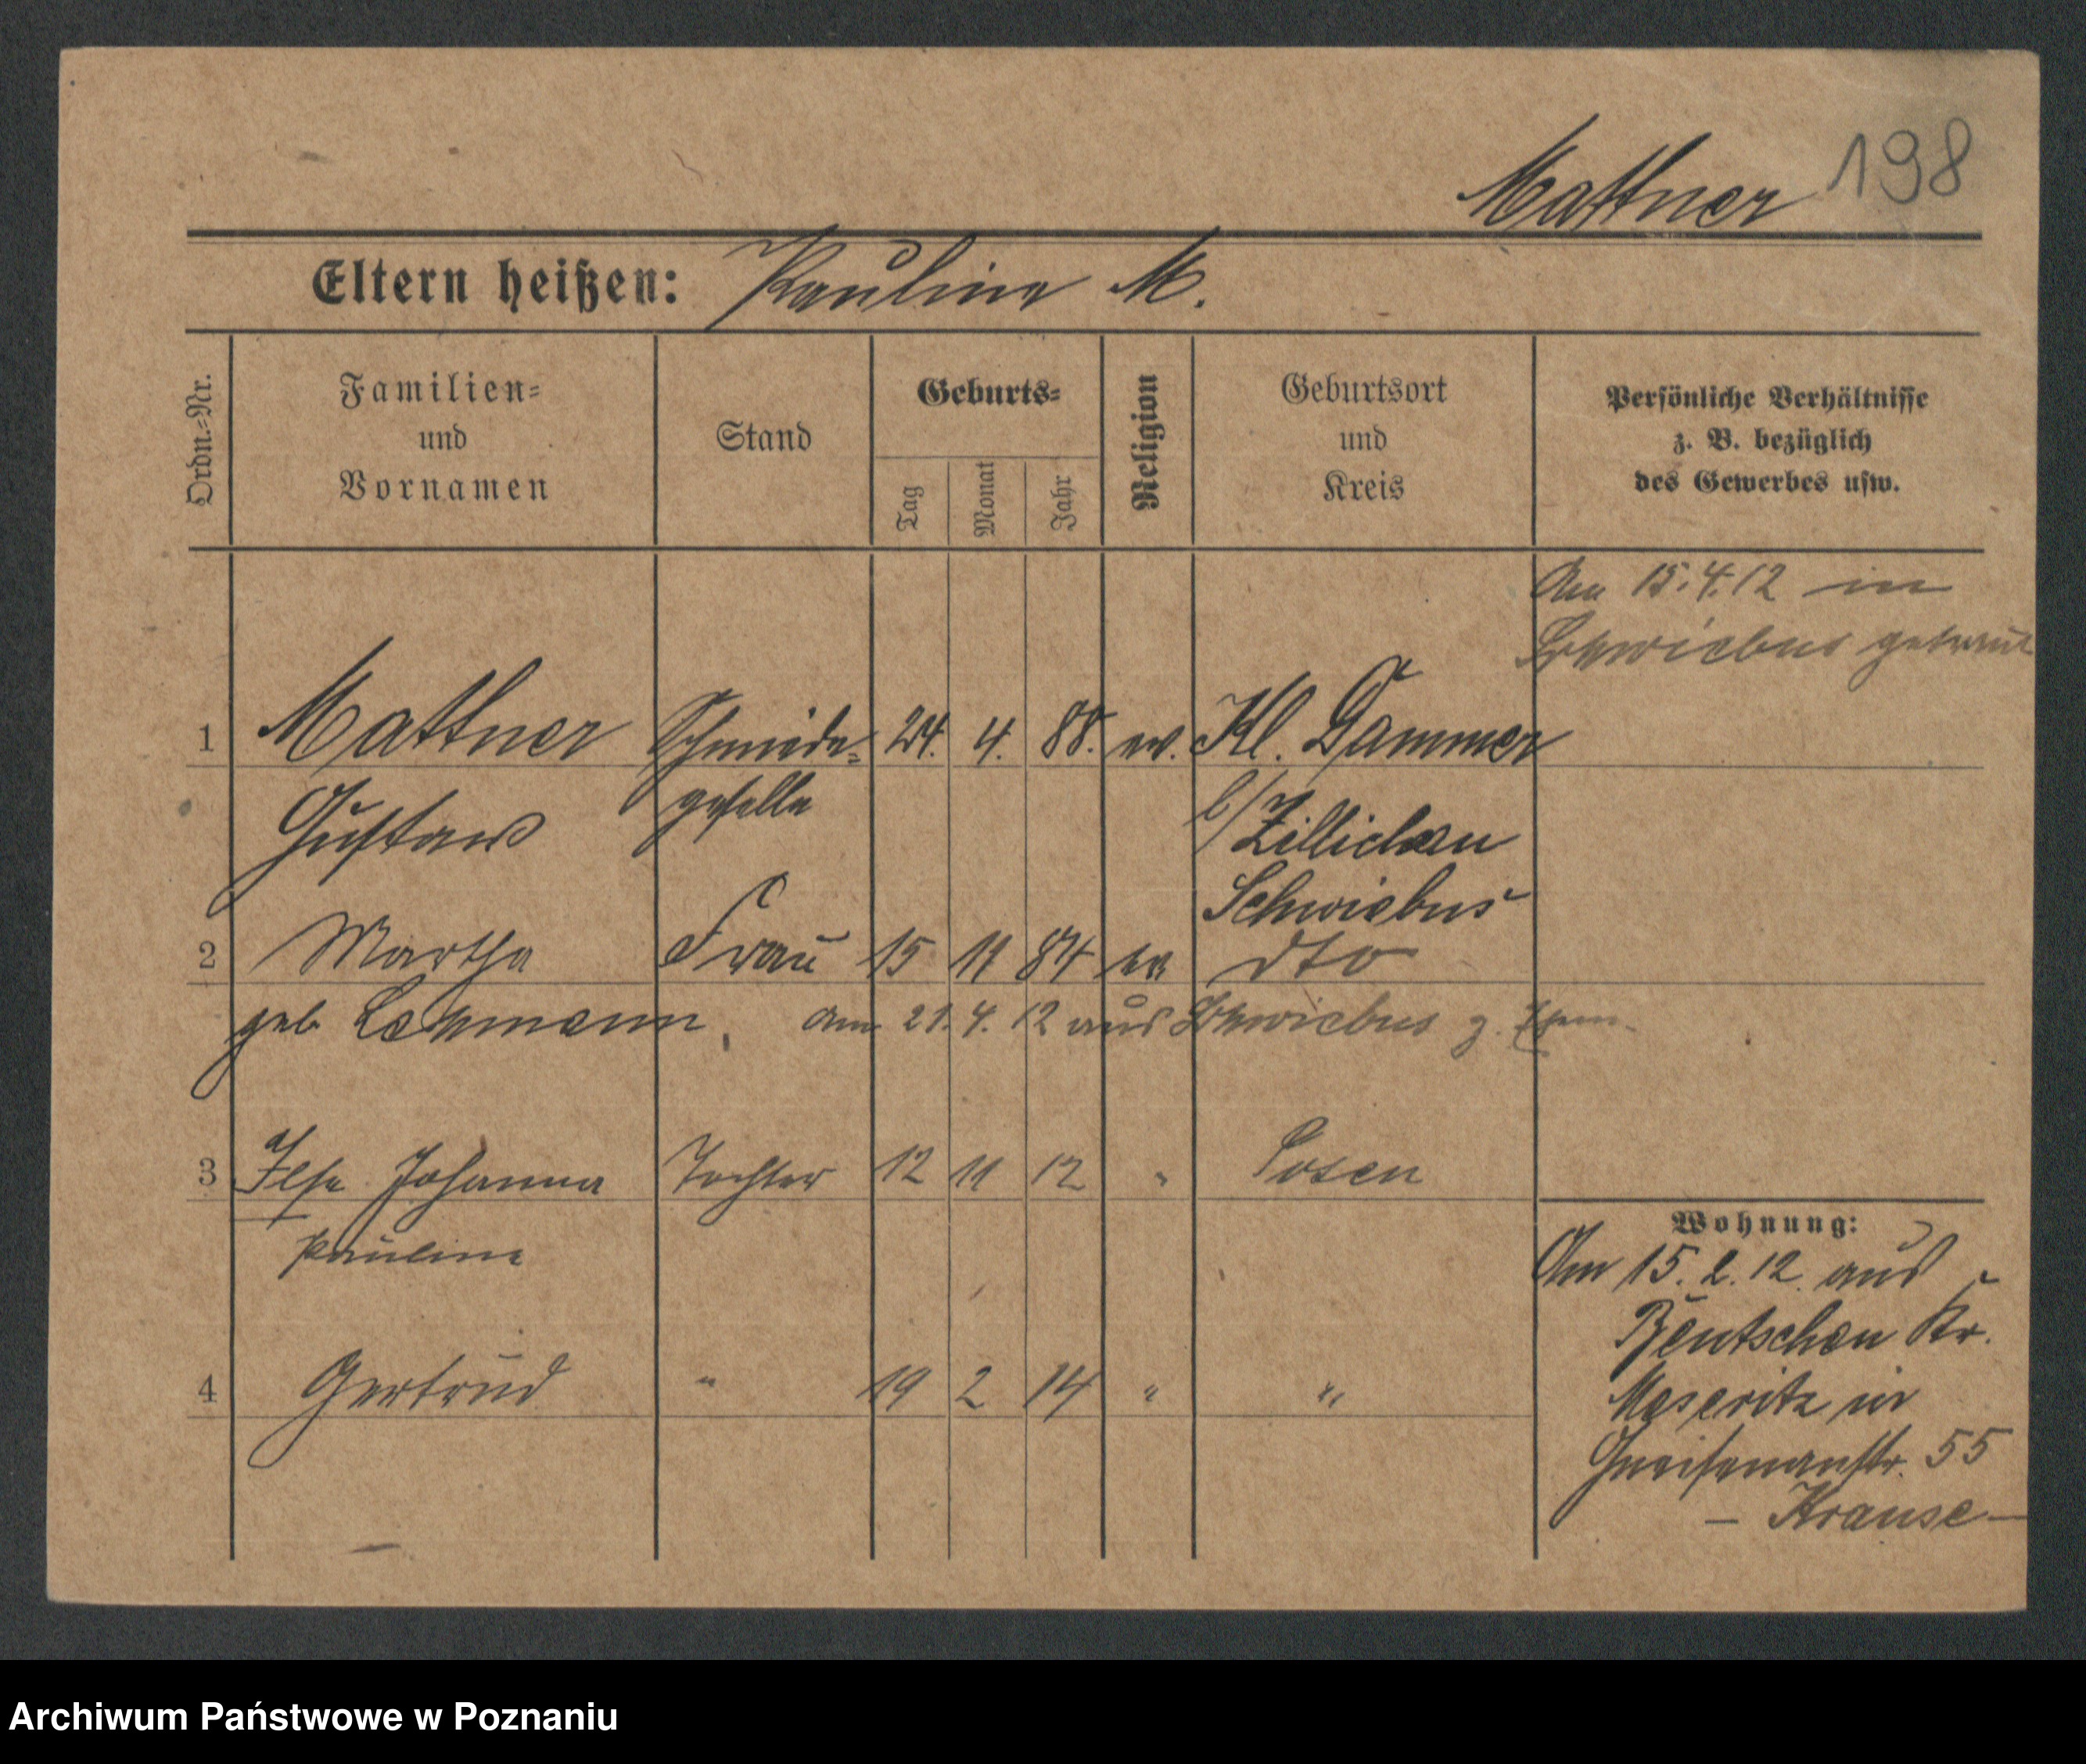 Mattner 198
Eltern heißen: Pauline M.
Ordn.-Nr.
Familien-
und
Vornamen
Stand
Geburts-
Tag
Monat
Jahr
Religion
Geburtsort
und
Kreis
Persönliche Verhältnisse
z. B. bezüglich
des Gewerbes usw.
Am 15.4.12 in
Schwiebus getraut
1 Mattner Schmiede- 24. 4. 88. ev. Kl. Dammer
Gustav geselle b/ Züllichau
Schwiebus
2 Martha Frau 15 11 84 ev dto
geb. Lehmann, am 21.4.12 aus Schwiebus z.
3 Ilse Johanna Tochter 12 11 12 " Posen
Pauline
4 Gertrud " 19 2 14 " "
Wohnung:
Am 15.2.12. aus
Bentschen Kr.
Meseritz in
Gneisenaustr. 55
– Krause –
Archiwum Państwowe w Poznaniu